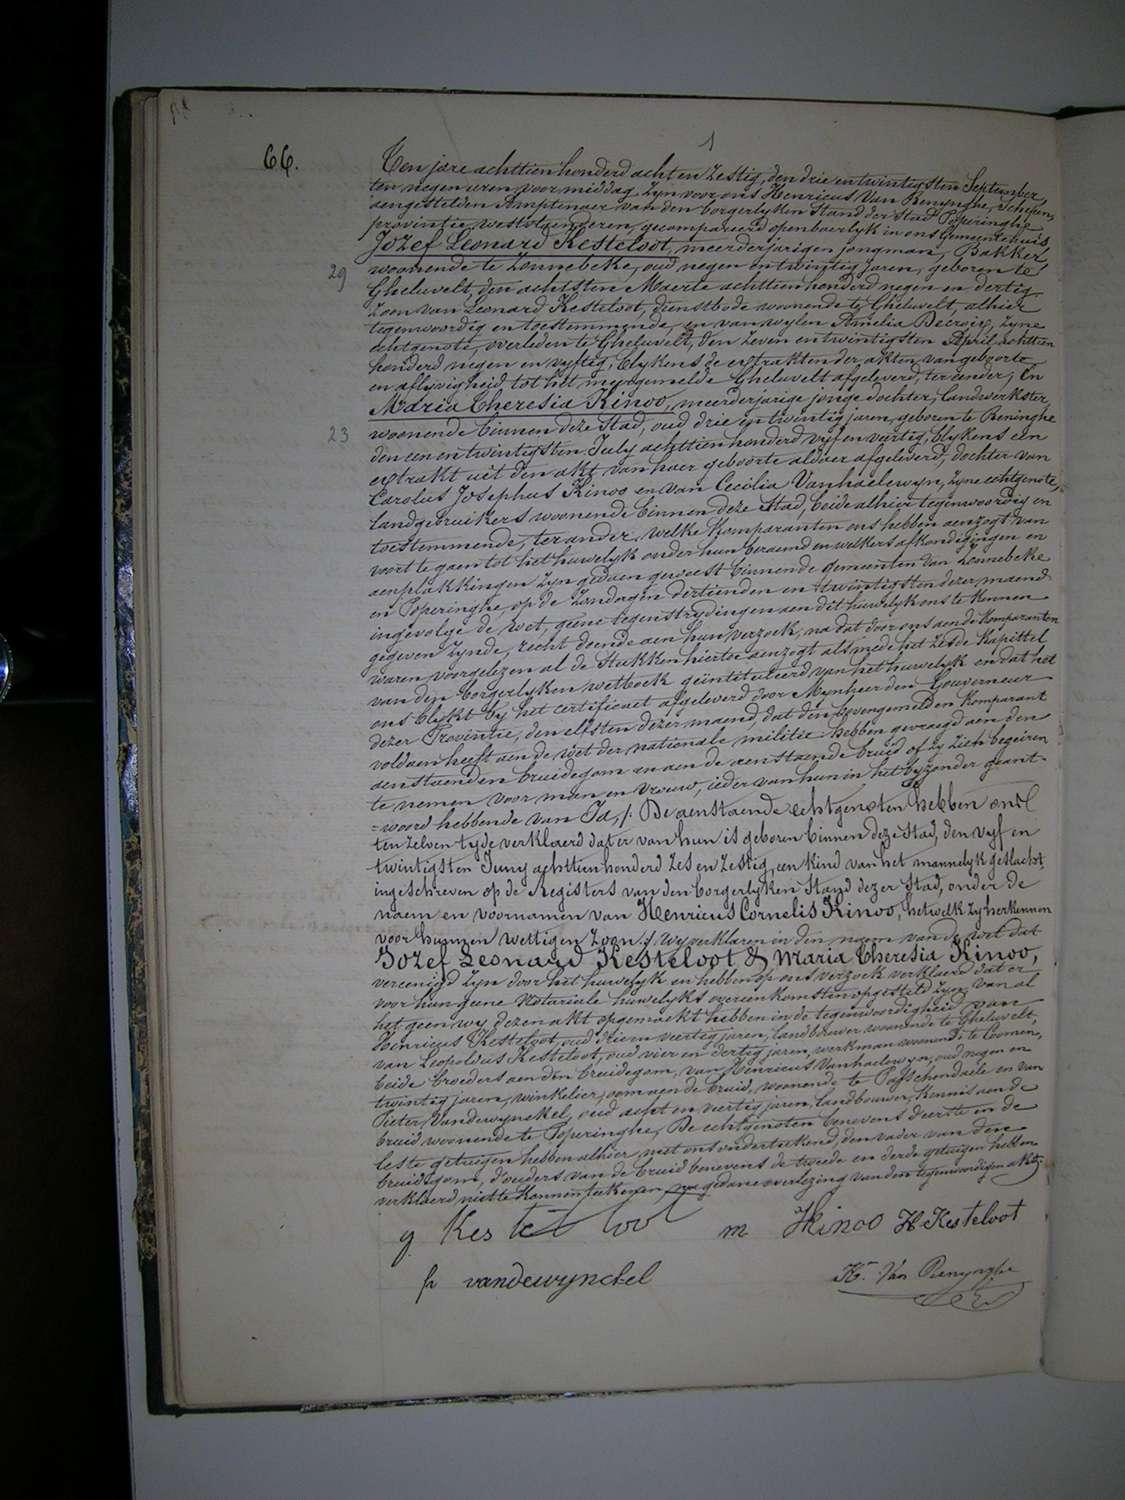 1
66.
Ten jare achttien honderd acht en zestig, den drie en twintigsten September
ten negen uren voormiddag, zyn voor ons Henricus Van Renynghe, Schepen,
aengestelden Amptenaer van den borgerlyken Stand der Stad Poperinghe
provintie westvlaenderen, gecompareerd openbaerlyk in ons Gemeentehuis,
Jozef Leonard Kesteloot, meerderjarigen jongman, Bakker,
29
woonende te Zonnebeke, oud negen en twintig jaren, geboren te
Gheluvelt, den achtsten Maerte achttien honderd negen en dertig
zoon van Leonard Kesteloot, dienstbode woonende te Gheluvelt, alhier
tegenwoordig en toestemmende, en van wylen Amelia Decroix, zyne
echtgenote, overleden te Gheluvelt, den zeven en twintigsten April achttien
honderd negen en vyftig, blykens de extrakten der akten van geboorte
en aflyvigheid tot het meergemelde Gheluvelt afgeleverd, ter eender; En
Maria Theresia Kinoo, meerderjarige jonge dochter, landwerkster,
23
woonende binnen deze stad, oud drie en twintig jaren, geboren te Reninghe
den een en twintigsten July achttien honderd vyf en vertig, blykens een
extrakt uit den akt van haer geboorte aldaer afgeleverd, dochter van
Carolus Josephus Kinoo en van Cecilia Vanhaelewyn, zyne echtgenote,
landgebruikers woonende binnen deze Stad, beide alhier tegenwoordig en
toestemmende, ter ander, welke Komparanten ons hebben aenzogt van
voort te gaen tot het huwelyk onder hun beraemd en welkers afkondigingen en
aenplakkingen zyn gedaen geweest binnen de Gemeenten van Zonnebeke
en Poperinghe, op de Zondagen dertienden en twintigsten dezer maend
ingevolge de wet, geene tegenstrydingen aen dit huwelyk ons te kennen
gegeven zynde, recht doende aen hun verzoek, na dat door ons aen de Komparanten
waren voorgelezen al de stukken hiertoe aenzogt alsmede het Zesde Kapittel
van den borgerlyken wetboek geïntituleerd van het huwelyk en dat het
ons blykt by het certificaet afgeleverd door Mynheer den Gouverneur
dezer Provintie, den elfsten dezer maend, dat den bovengemelden Komparant
voldaen heeft aen de wet der nationale militie hebben gevraegd aen den
aenstaenden bruidegom en aen de aenstaende bruid of zy zich begeiren
te nemen voor man en vrouw, ieder van hun in het byzonder geant-
=woord hebbende van Ja, /. De aenstaende echtgenoten hebben ons
ten zelven tyde verklaerd dat er van hun is geboren binnen deze Stad, den vyf en
twintigsten Juny achttien honderd zes en zestig, een kind van het mannelyk geslacht,
ingeschreven op de Registers van den borgerlyken Stand dezer Stad, onder de
naem en voornamen van Henricus Cornelis Kinoo, hetwelk zy herkennen
voor hunnen wettigen zoon ./. wy verklaren in den naem van de wet dat
Jozef Leonard Kesteloot & Maria Theresia Kinoo,
vereenigd zyn door het huwelyk en hebben op ons verzoek verklaerd dat er
voor hun geene Notariale huwelyks overeenkomsten opgesteld zyn van al
het geen wy dezen akt opgemaekt hebben in de tegenwoordigheid van
Henricus Kesteloot, oud drie en veertig jaren, landbouwer woonende te Gheluvelt,
van Leopoldus Kesteloot, oud vier en dertig jaren, werkman woonende te Comen,
beide broeders aen den bruidegom, van Henricus Vanhaelewyn, oud negen en
twintig jaren, winkelier, oom aen de bruid, woonende te Passchendaele en van
Pieter Vandewynckel, oud acht en veertig jaren, landbouwer, kennis aen de
bruid woonende te Poperinghe, De echtgenoten benevens d'eerste en de
leste getuigen hebben alhier met ons onderteekend, den vader van den
bruidegom, d'ouders van de bruid benevens de tweede en derde getuigen hebben
verklaerd niet te Konnen teekenen na gedane overlezing van den tegenwoordigen akt.
g Kesteloot m Kinoo H Kesteloot
p vandewynckel H. Van Renynghe